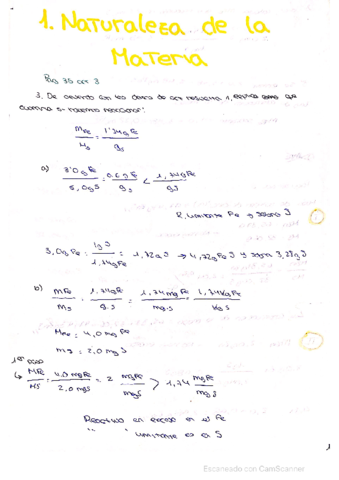 1. Naturaleza de la
Materia
Pág 35 act 3
3. De acuerdo con los datos de act resuelta 1, explica como que
cuantos si haremos reaccionar:
mFe / mS = 1'74g Fe / gS
a) 3'0g Fe / 5,0g S = 0.6g Fe / gS < 1,74g Fe / gS
R. Limitante Fe → sobra S
3,0g Fe · 1g S / 1,74g Fe = 1,72g S → 4,72g Fe S y sobra 3,28g S
b) mFe / mS = 1.74g Fe / g.S = 1,74 mg Fe / mg.S = 1,74 Kg Fe / Kg S
mFe = 4,0 mg Fe
mS = 2,0 mg S
1er caso
↳ mFe / mS = 4.0 mg Fe / 2,0 mg S = 2 mg Fe / mg S > 1,74 mg Fe / mg S
Reactivo en exceso es el Fe
" " limitante es el S
1
Escaneado con CamScanner